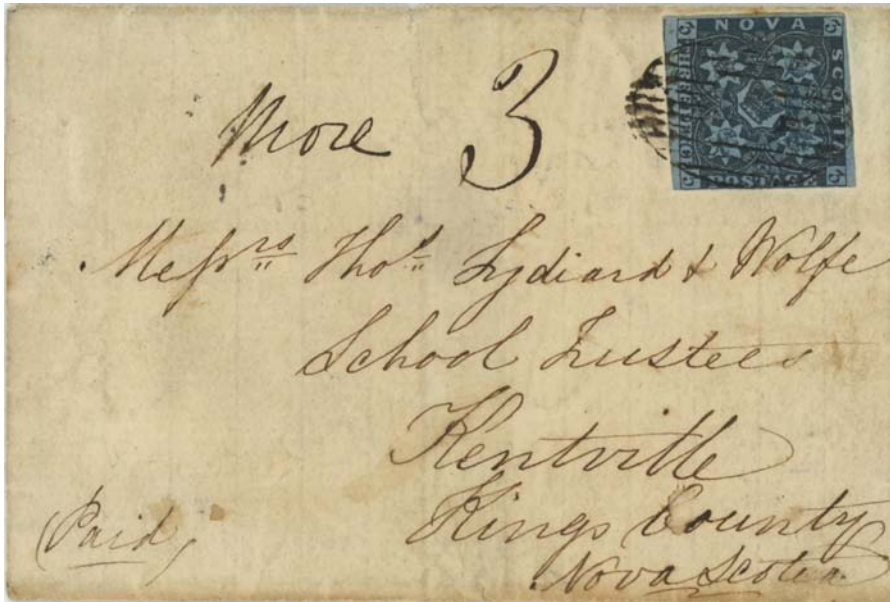 NOVA SCOTIA
POSTAGE
3 3 3
More 3
Messrs Thos Lydiard & Wolfe
School Trustees
Kentville
Kings County
Nova Scotia
Paid,